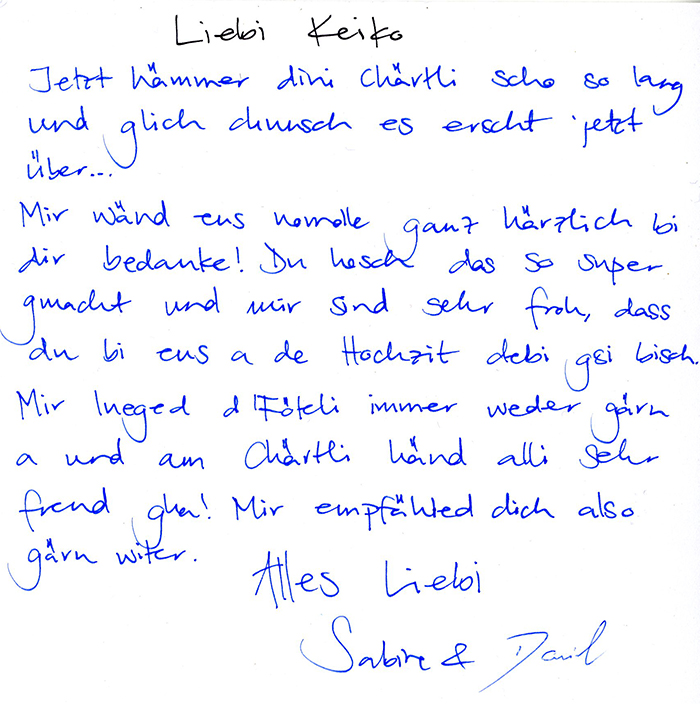 Liebi Keiko
Jetzt hämmer dini Chärtli scho so lang
und glich chunsch es erscht jetzt
über...
Mir wänd eus nomolle ganz härzlich bi
dir bedanke! Du hesch das so super
gmacht und mir sind sehr froh, dass
du bi eus a de Hochzit debi gsi bisch.
Mir lueged d'Föteli immer weder gärn
a und am Chärtli händ alli sehr
freud gha! Mir empfähled dich also
gärn witer.
Alles Liebi
Sabine & David